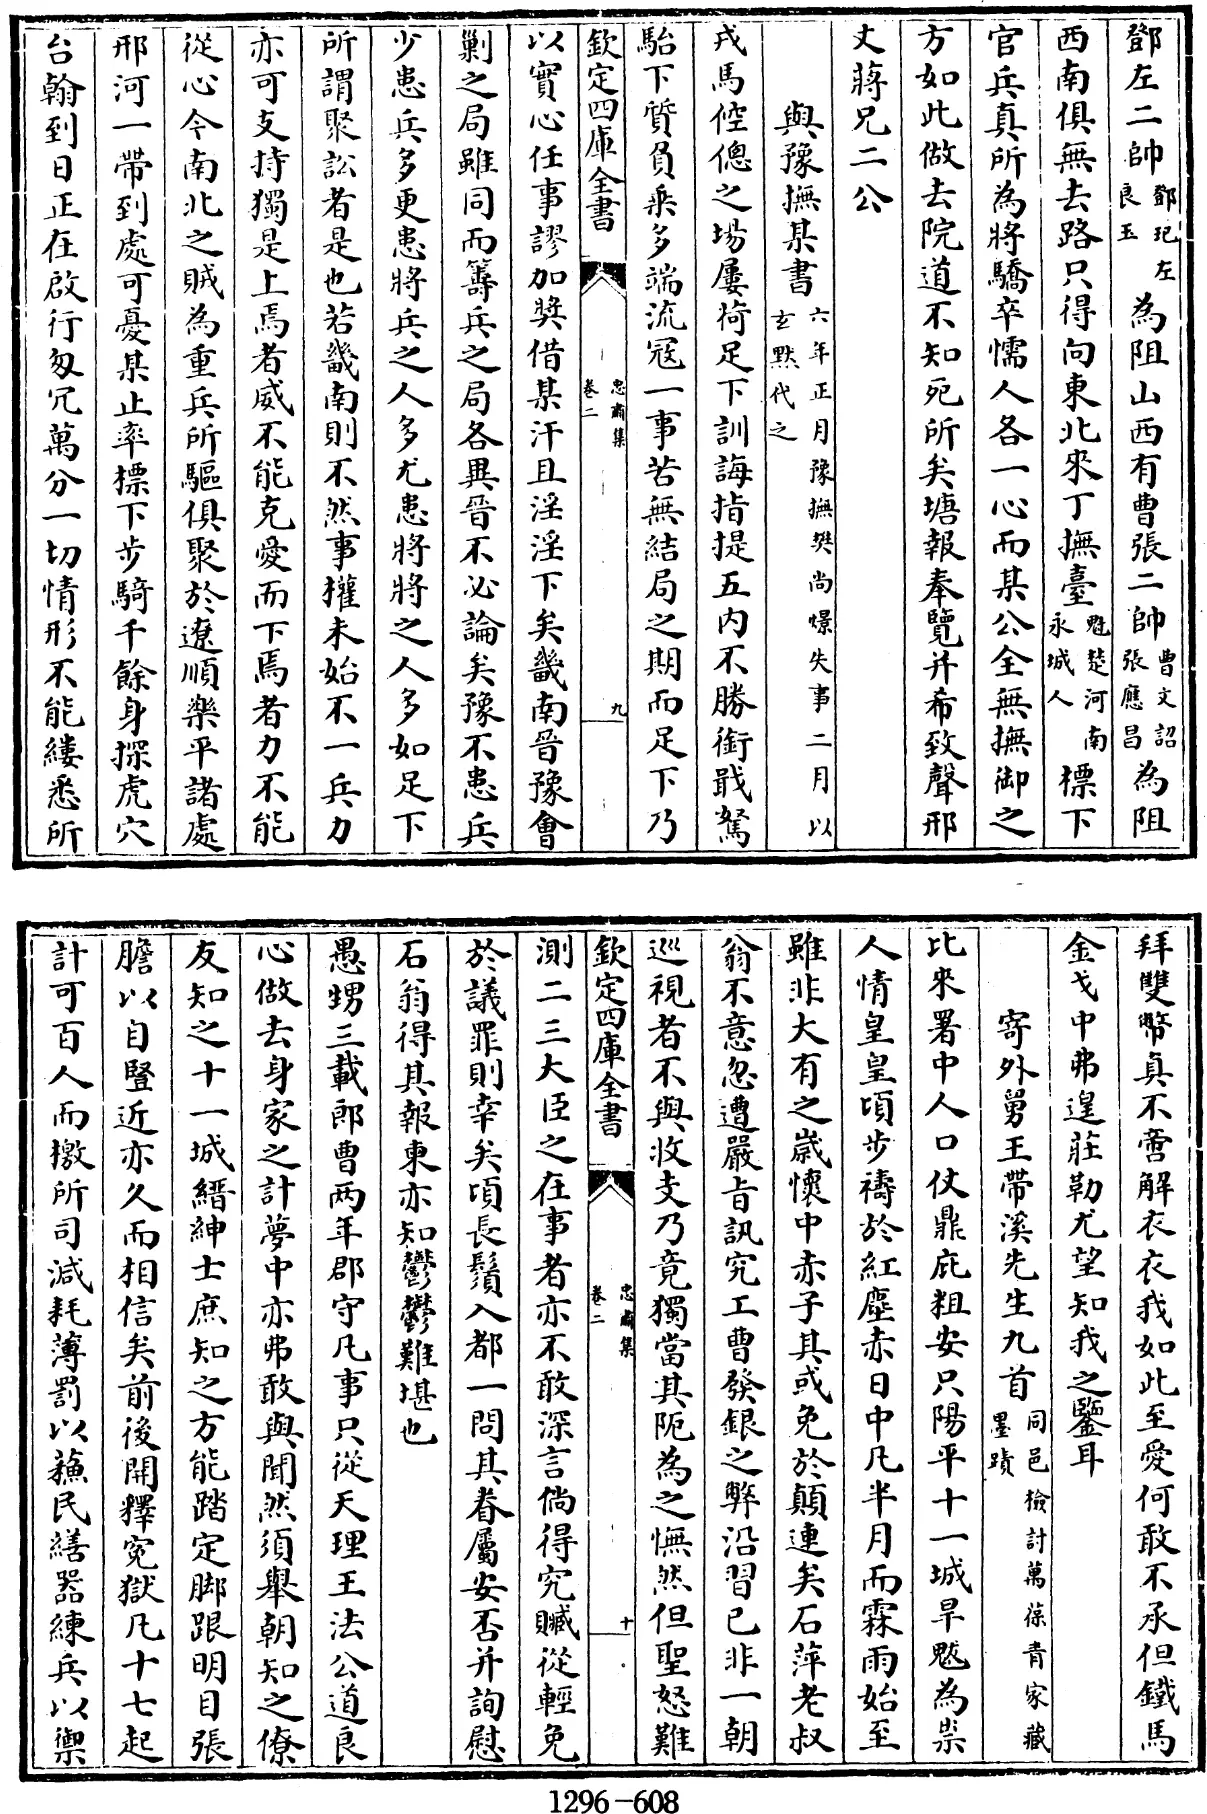 鄧左二帥鄧玘左良玉為阻山西有曹張二帥曹文詔張應昌為阻
西南俱無去路只得向東北來丁撫臺魁楚河南永城人標下
官兵真所為將驕卒懦人各一心而某公全無撫御之
方如此做去院道不知死所矣塘報奉覽并希致聲邢
丈蔣兄二公
與豫撫某書六年正月豫撫樊尚憬失事二月以玄默代之
戎馬倥傯之場屢荷足下訓誨指提五內不勝銜戢駑
駘下質負乘多端流冦一事苦無結局之期而足下乃
欽定四庫全書
忠肅集
卷二
九
以實心任事謬加奬借某汗且淫淫下矣畿南晉豫會
剿之局雖同而籌兵之局各異晉不必論矣豫不患兵
少患兵多更患將兵之人多尤患將將之人多如足下
所謂聚訟者是也若畿南則不然事權未始不一兵力
亦可支持獨是上焉者威不能克愛而下焉者力不能
從心今南北之賊為重兵所驅俱聚於遼順樂平諸處
邢河一帶到處可憂某止率標下步騎千餘身探虎穴
台翰到日正在啟行匆冗萬分一切情形不能縷悉所
拜雙幣真不啻解衣衣我如此至愛何敢不承但鐵馬
金戈中弗遑莊勒尤望知我之鑒耳
寄外舅王帶溪先生九首同邑檢討萬葆青家藏墨蹟
比來署中人口仗鼎庇粗安只陽平十一城旱魃為祟
人情皇皇頃步禱於紅塵赤日中凡半月而霖雨始至
雖非大有之歲懷中赤子其或免於顛連矣石萍老叔
翁不意忽遭嚴旨訊究工曹發銀之弊沿習已非一朝
巡視者不與收支乃竟獨當其阨為之憮然但聖怒難
欽定四庫全書
忠肅集
卷二
十
測二三大臣之在事者亦不敢深言倘得究贓從輕免
於議罪則幸矣頃長鬚入都一問其眷屬安否并詢慰
石翁得其報柬亦知鬱鬱難堪也
愚甥三載郎曹两年郡守凡事只從天理王法公道良
心做去身家之計夢中亦弗敢與聞然須舉朝知之僚
友知之十一城縉紳士庶知之方能踏定脚跟明目張
膽以自豎近亦久而相信矣前後開釋寃獄凡十七起
計可百人而檄所司減耗薄罰以蘓民繕器練兵以禦
1296-608